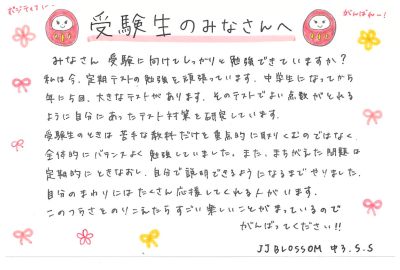 ポジティブに〜
がんばれー!
受験生のみなさんへ
みなさん 受験に向けてしっかりと勉強できていますか?
私は今、定期テストの勉強を頑張っています。中学生になってから
年に5回、大きなテストがあります。そのテストでよい点数がとれる
ように自分にあったテスト対策を研究しています。
受験生のときは苦手な教科だけを重点的に取りくむのではなく、
全体的にバランスよく勉強していました。また、まちがえた問題は
定期的にときなおし、自分で説明できるようになるまでやりました。
自分のまわりにはたくさん応援してくれる人がいます。
このつらさをのりこえたらすごい楽しいことがまっているので
がんばってください!!
JJBLOSSOM 中3.S.S